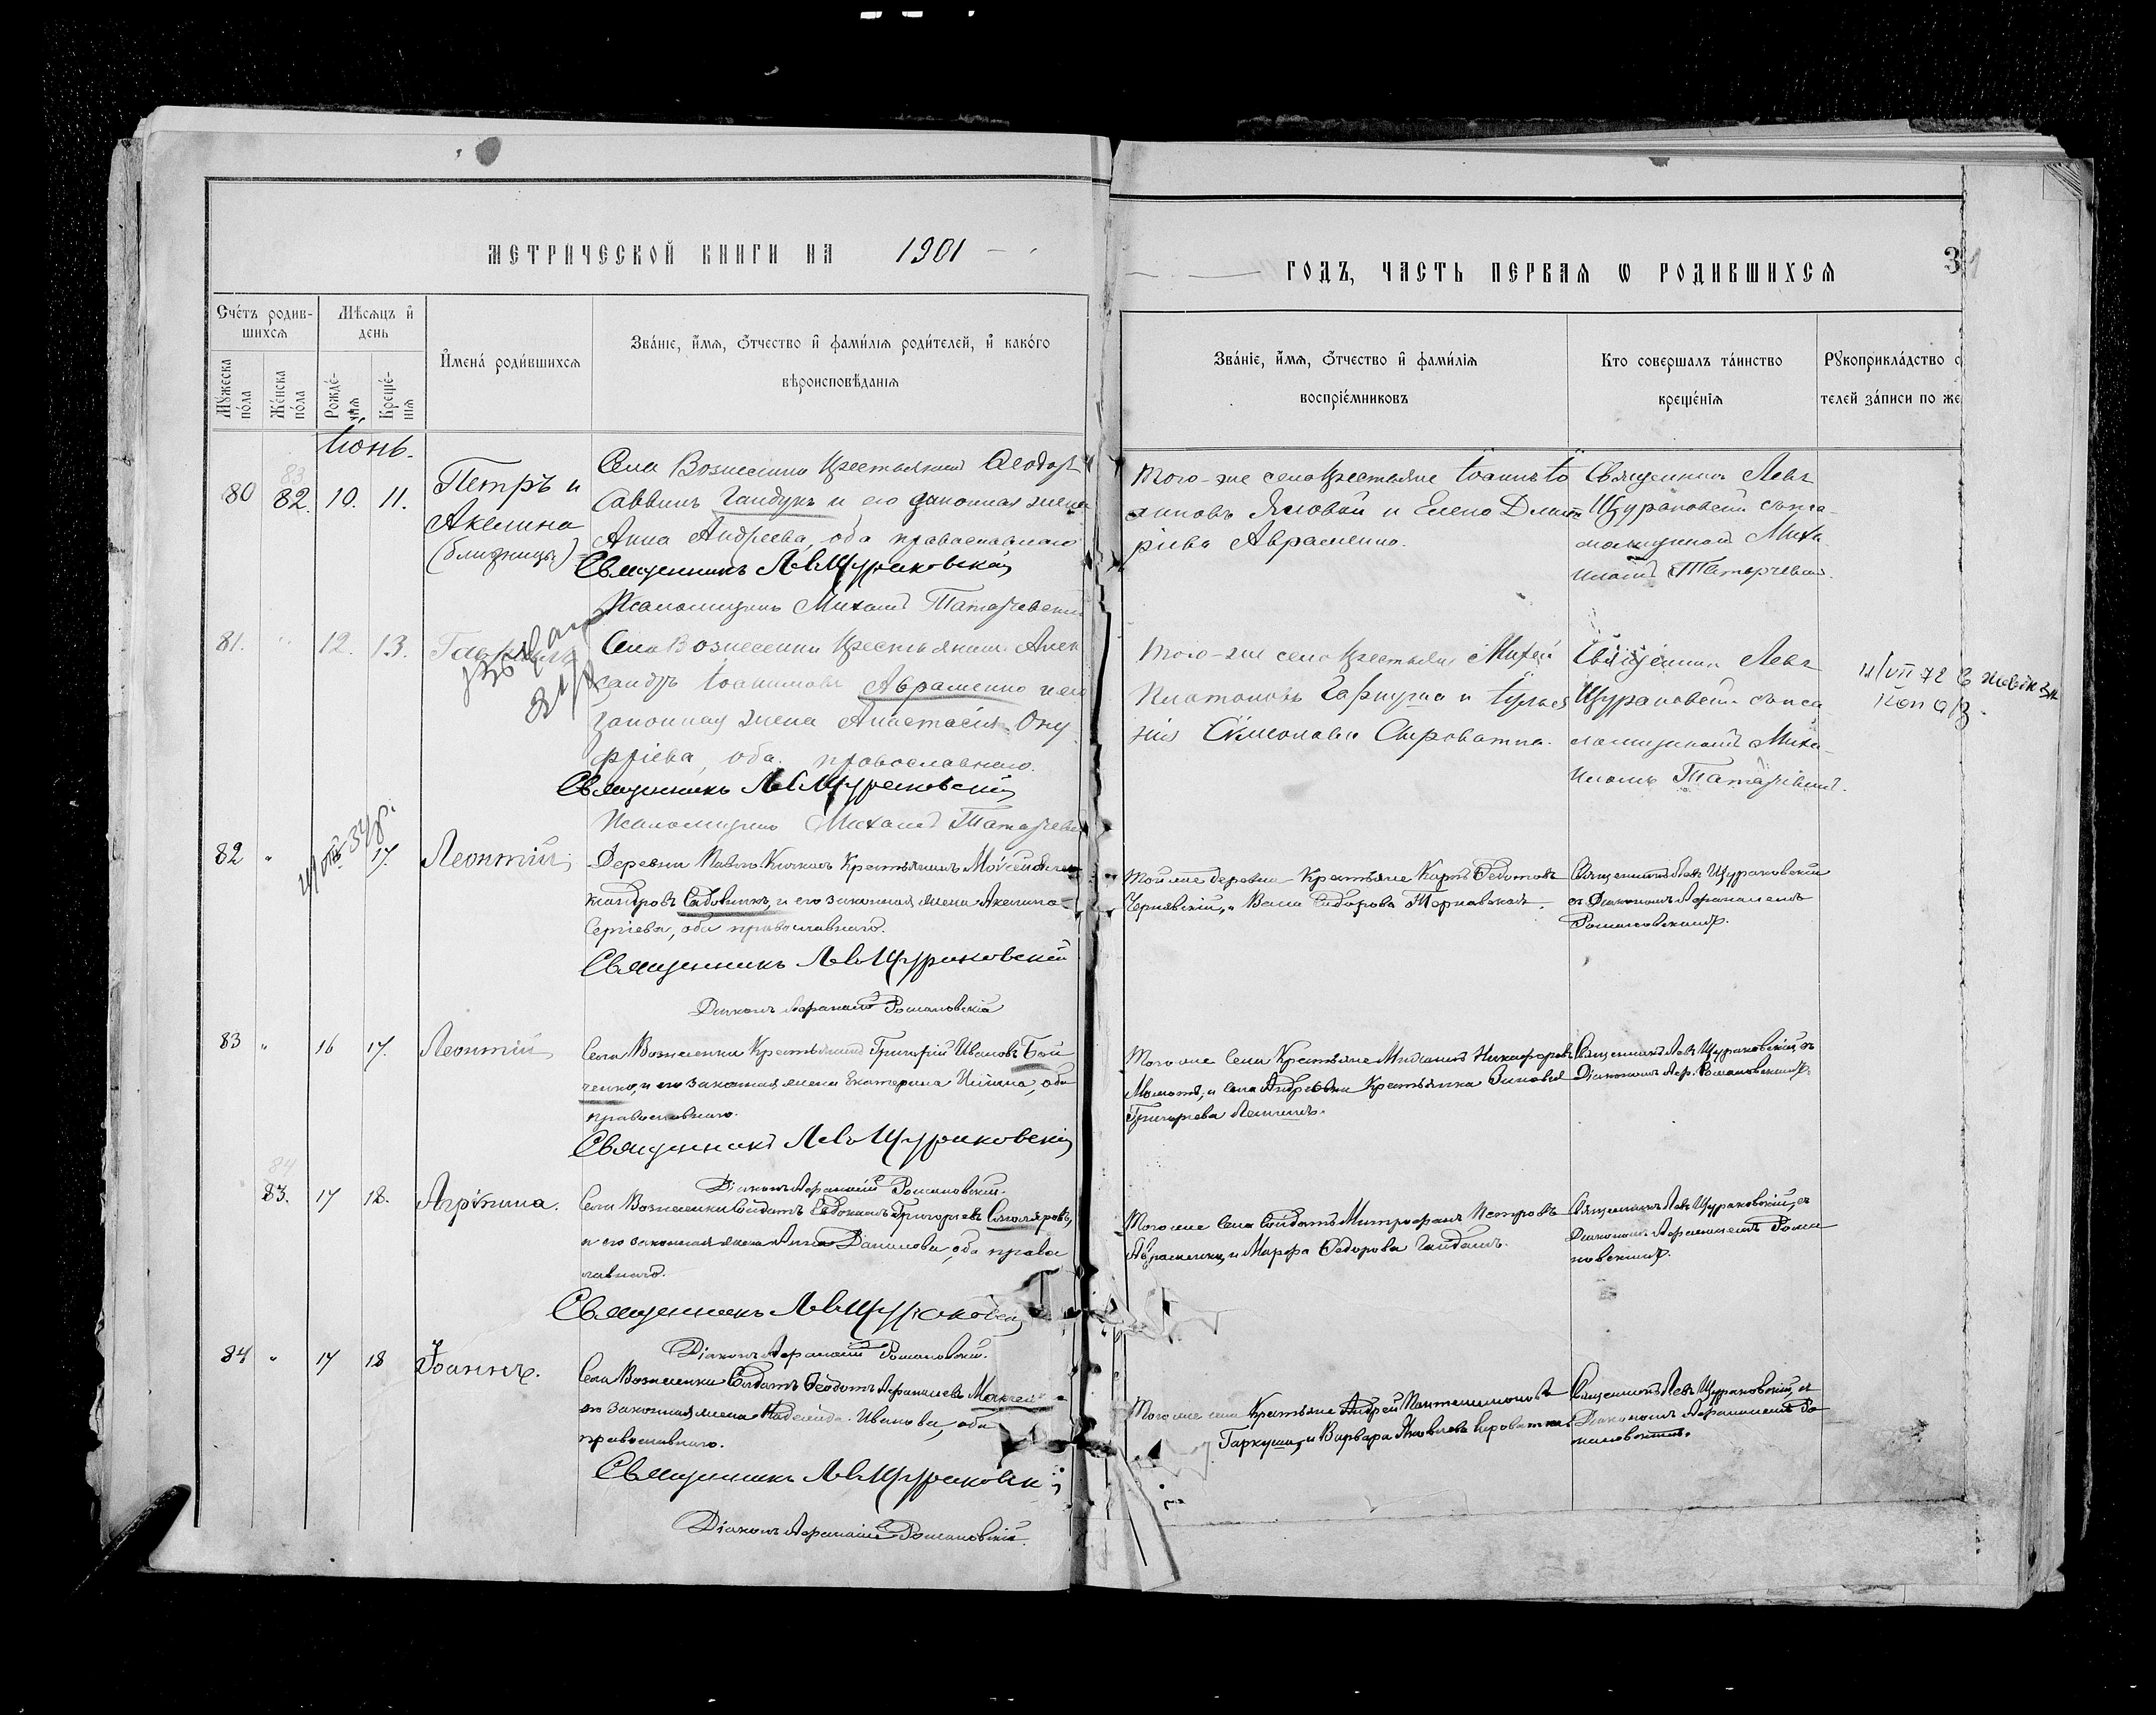 МЕТРИЧЕСКОЙ КНИГИ НА 1901
ГОДЪ, ЧАСТЬ ПЕРВАЯ Ѡ РОДИВШИХСЯ
3
Сче́тъ родив-
шихсѧ
Мѣсѧцъ и҆
день
Мꙋжеска
по́ла
Же́нска
по́ла
Рожде́-
нїѧ
Креще́-
нїѧ
И҆мена̀ роди́вшихсѧ
Зва́нїе, и҆́мѧ, ѻ҆́тчество и҆ фамѝлїѧ роди́телей, и҆ како́го
вѣроисповѣ́данїѧ
Зва́нїе, и҆́мѧ, ѻ҆́тчество и҆ фамѝлїѧ
воспрїе́мниковъ
Кто соверша́лъ та́инство
креще́нїѧ
Рꙋкоприкла́дство с
телей за́писи по же
Іюнь.
83
80 82. 10. 11.
Петръ и
Акелина
(близнецы)
Села Вознесенки крестьянинъ Ѳеодотъ
Саввинъ Гайдукъ и его законная жена
Анна Андреева, оба православнаго
Священникъ Левъ Щураковскій
Псаломщикъ Михаилъ Татарчевскій
Того-же села крестьяне Іоаннъ Іо
Яловой и Елена Димит
ріева Авраменко.
Священникъ Левъ
Щураковскій съ пса-
ломщикомъ Миха
иломъ Татарчевским.
81. " 12. 13. Гавріилъ
Села Вознесенки крестьянинъ Алек
сандръ Іоакимовъ Авраменко и его
законная жена Анастасія Ону
фріева, оба православнаго.
Священникъ Левъ Щураковскій
Псаломщикъ Михаилъ Татарчевскій
Того-же села крестьяне Михей
Платоновъ Гаркуша и Іулія
Симеонова Сыроватка.
Священник Левъ
Щураковскій съ пса
ломщикомъ Миха-
иломъ Татарчевским.
82 " 17. Леонтій
Деревни Павло-Кичкасъ Крестьянинъ Моисей Алек
сандровъ Садовникъ, и его законная жена Акелина
Сергіева, оба православнаго.
Священникъ Левъ Щураковскій
Діаконъ Аѳанасій Романовскій
Той же деревни Крестьяне Карпъ Ѳедотовъ
Чернявскій, и Васса Сидорова Тернавская.
Священникъ Левъ Щураковскій
съ Діакономъ Аѳанасіемъ
Романовскимъ.
83 " 16 17. Леонтій
Села Вознесенки Крестьянинъ Григорій Ивановъ Бой
ченко, и его законная жена Екатерина Ильина, оба
православнаго.
Священникъ Левъ Щураковскій
Діаконъ Аѳанасій Романовскій.
Того же Села Крестьяне Михаилъ Никифоровъ
и села Андреевки Крестьянка Зиновія
Григорьева
Священникъ Левъ Щураковскій, съ
Діакономъ Аѳ. Романовскимъ.
84
83. 17 18. Агрипина.
Села Вознесенки Солдатъ Евдокимъ Григорьевъ Столяровъ,
и его законная жена Анна Данилова, оба право
славнаго.
Священникъ Левъ Щураковскій
Діаконъ Аѳанасій Романовскій.
Того же Села Солдатъ Митрофанъ Петровъ
Авраменко, и Марфа Ѳедорова
Священникъ Левъ Щураковскій, съ
Діакономъ Аѳанасіемъ Рома
новскимъ.
84 " 17 18 Іоаннъ.
Села Вознесенки Солдатъ Ѳеодотъ Аѳанасіевъ
его законная жена Надежда Иванова, оба
православнаго.
Священникъ Левъ Щураковскій
Діаконъ Аѳанасій Романовскій.
Того же села Крестьяне Андрей Пантелеимоновъ
Гаркуша, и Варвара Яковлева Сыроватка
Священникъ Левъ Щураковскій, съ
Діакономъ Аѳанасіемъ Ро
мановскимъ.